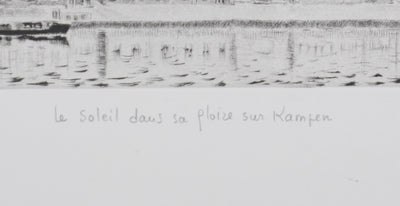 Le Soleil dans sa gloire sur Kampen